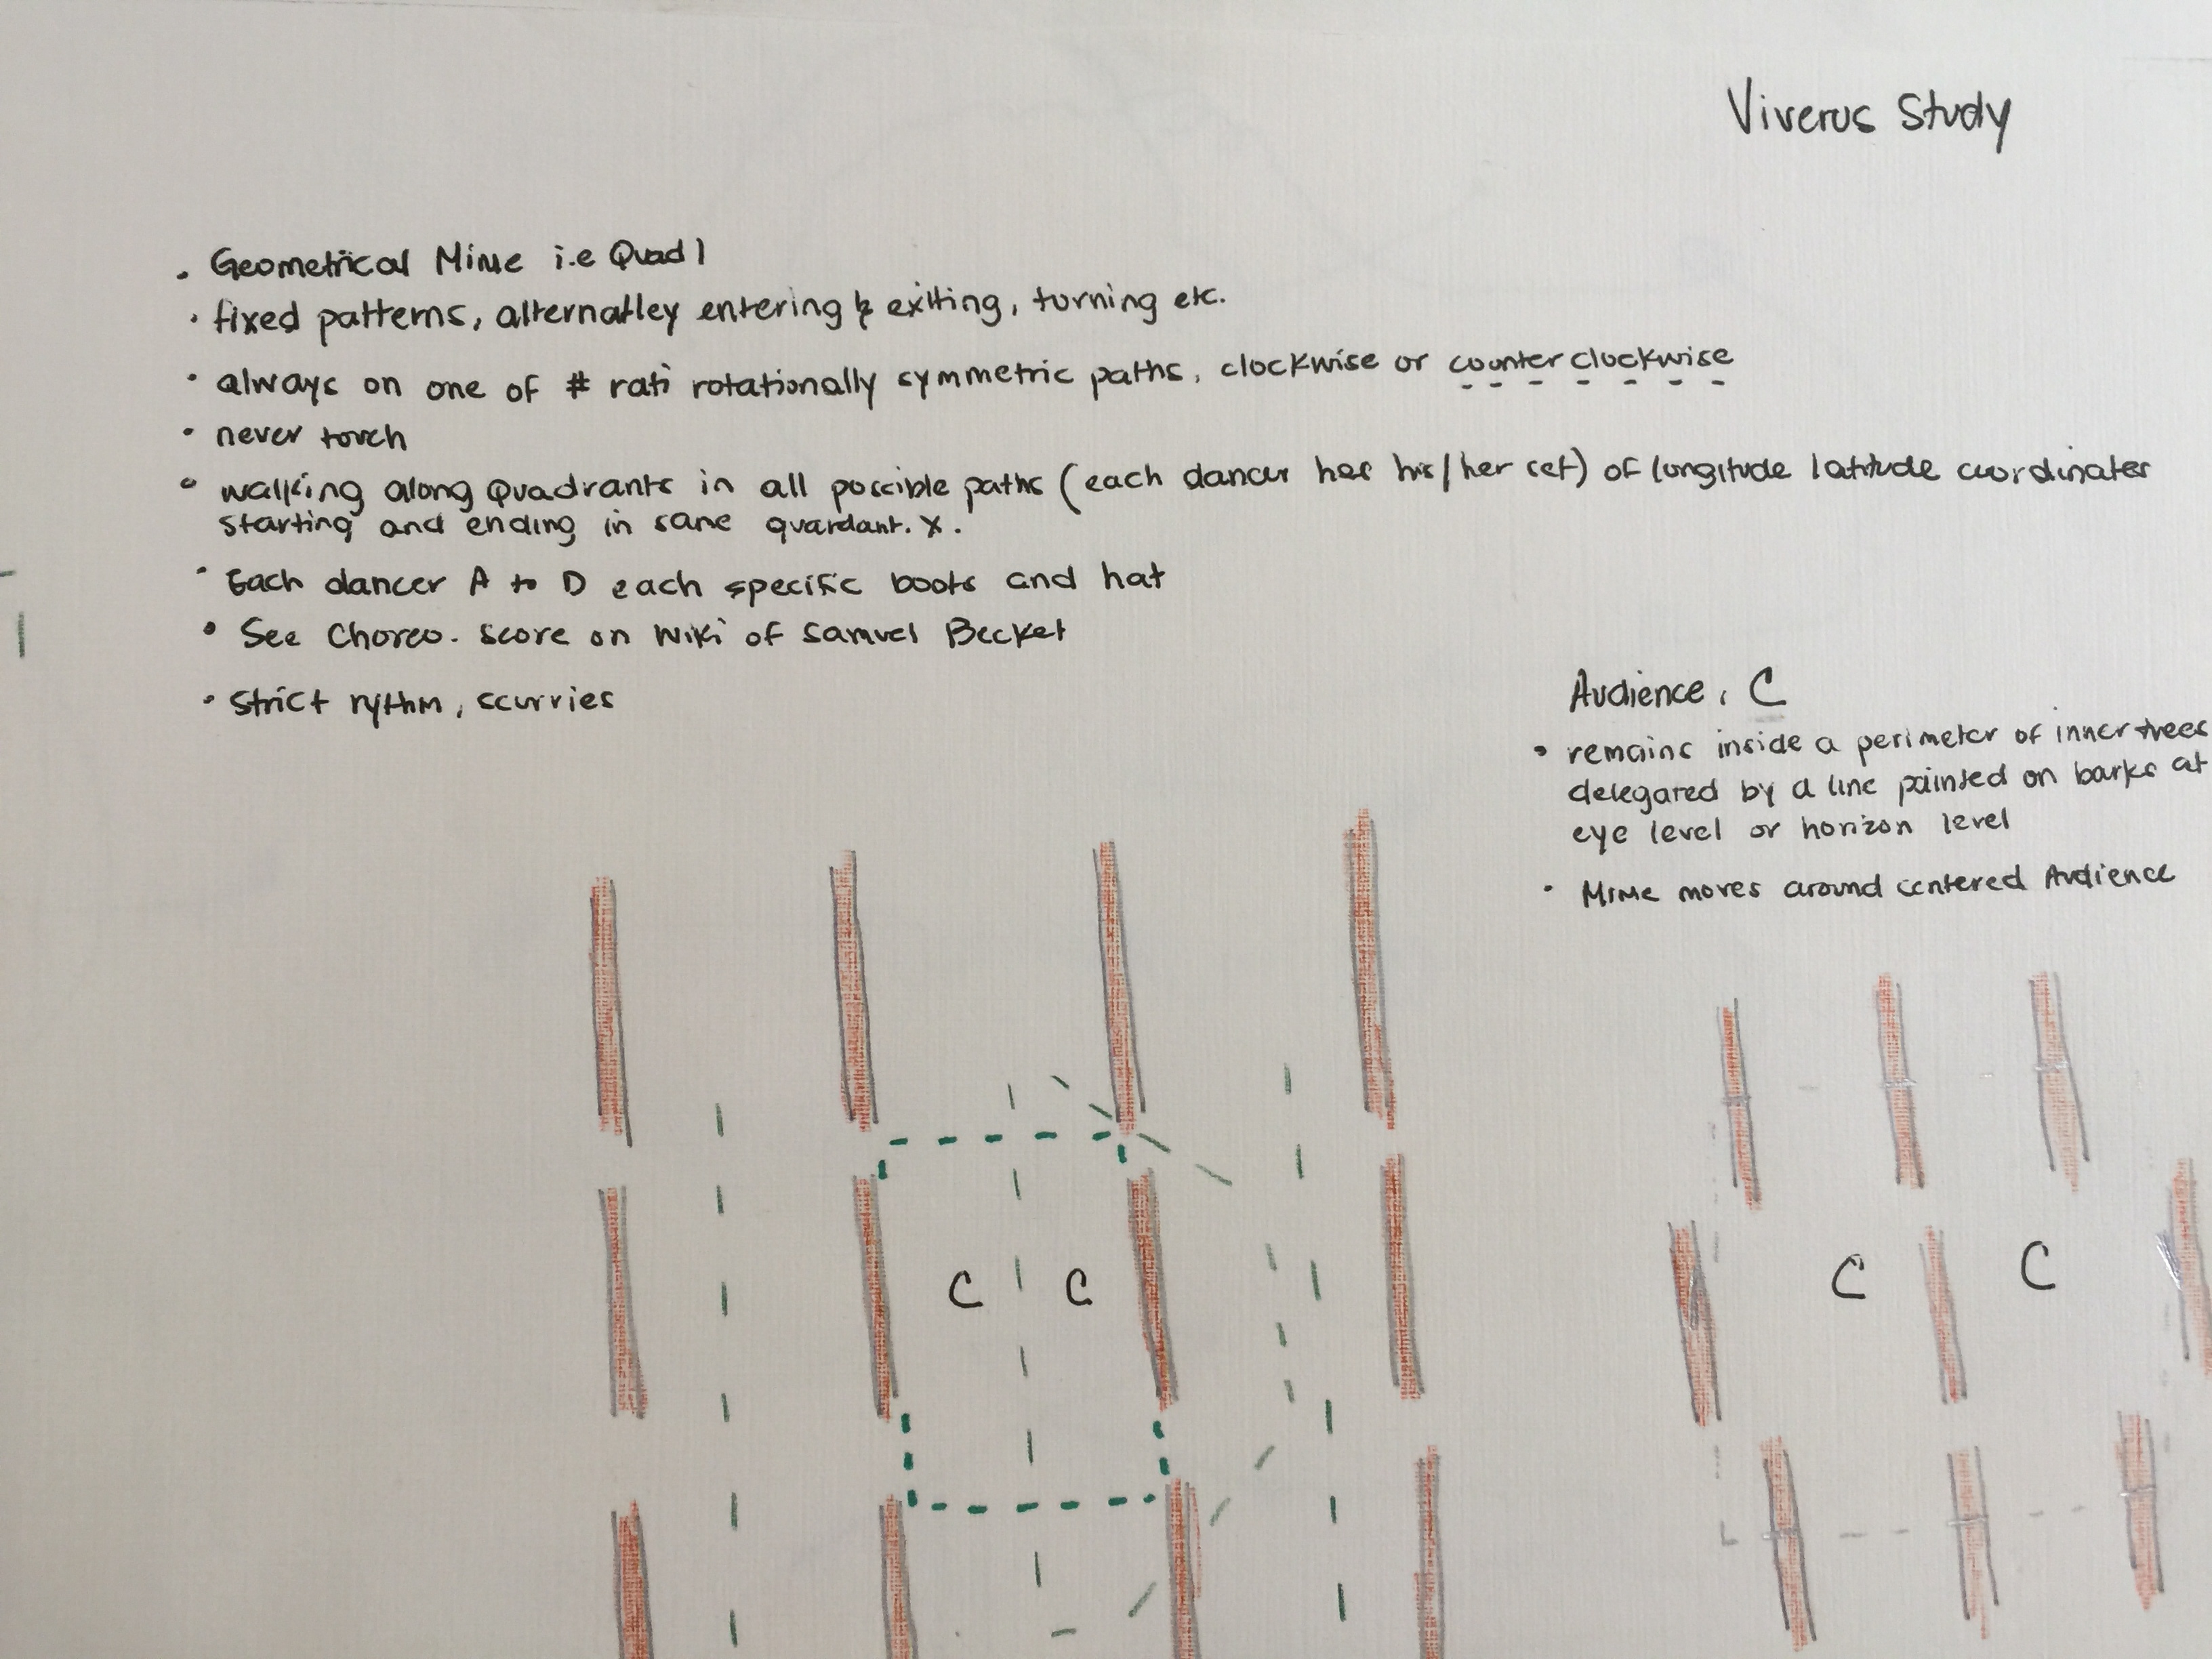 Viverus Study
• Geometrical Mime i.e Quad 1
• fixed patterns, alternatley entering & exiting, turning etc.
• always on one of # rati rotationally symmetric paths, clockwise or counter clockwise
• never touch
• walking along Quadrants in all possible paths (each dancer has his/her set) of longitude latitude coordinates
starting and ending in same quardant. X.
• Each dancer A to D each specific boots and hat
• See Choreo. score on wiki of Samuel Becket
• Strict rythm, scurries
Audience, C
• remains inside a perimeter of inner trees
delegared by a line painted on barks at
eye level or horizon level
• Mime moves around centered Audience
C C
C C